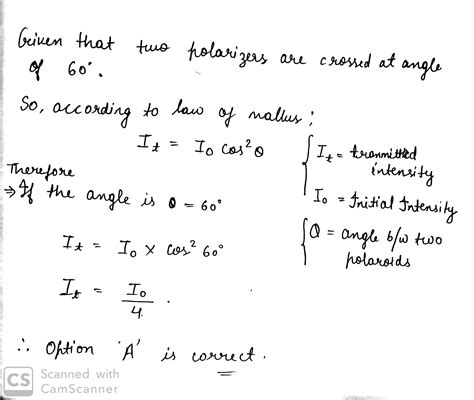 Given that two polarizers are crossed at angle
of 60°.
So, according to law of mallus;
I_t = I_0 cos²θ
{ I_t = tranmitted
intensity
I_0 = Initial Intensity
{ θ = angle b/w two
polaroids
Therefore
⇒ If the angle is θ = 60°
I_t = I_0 × cos² 60°
I_t = I_0/4 .
∴ Option 'A' is correct.
CS Scanned with
CamScanner